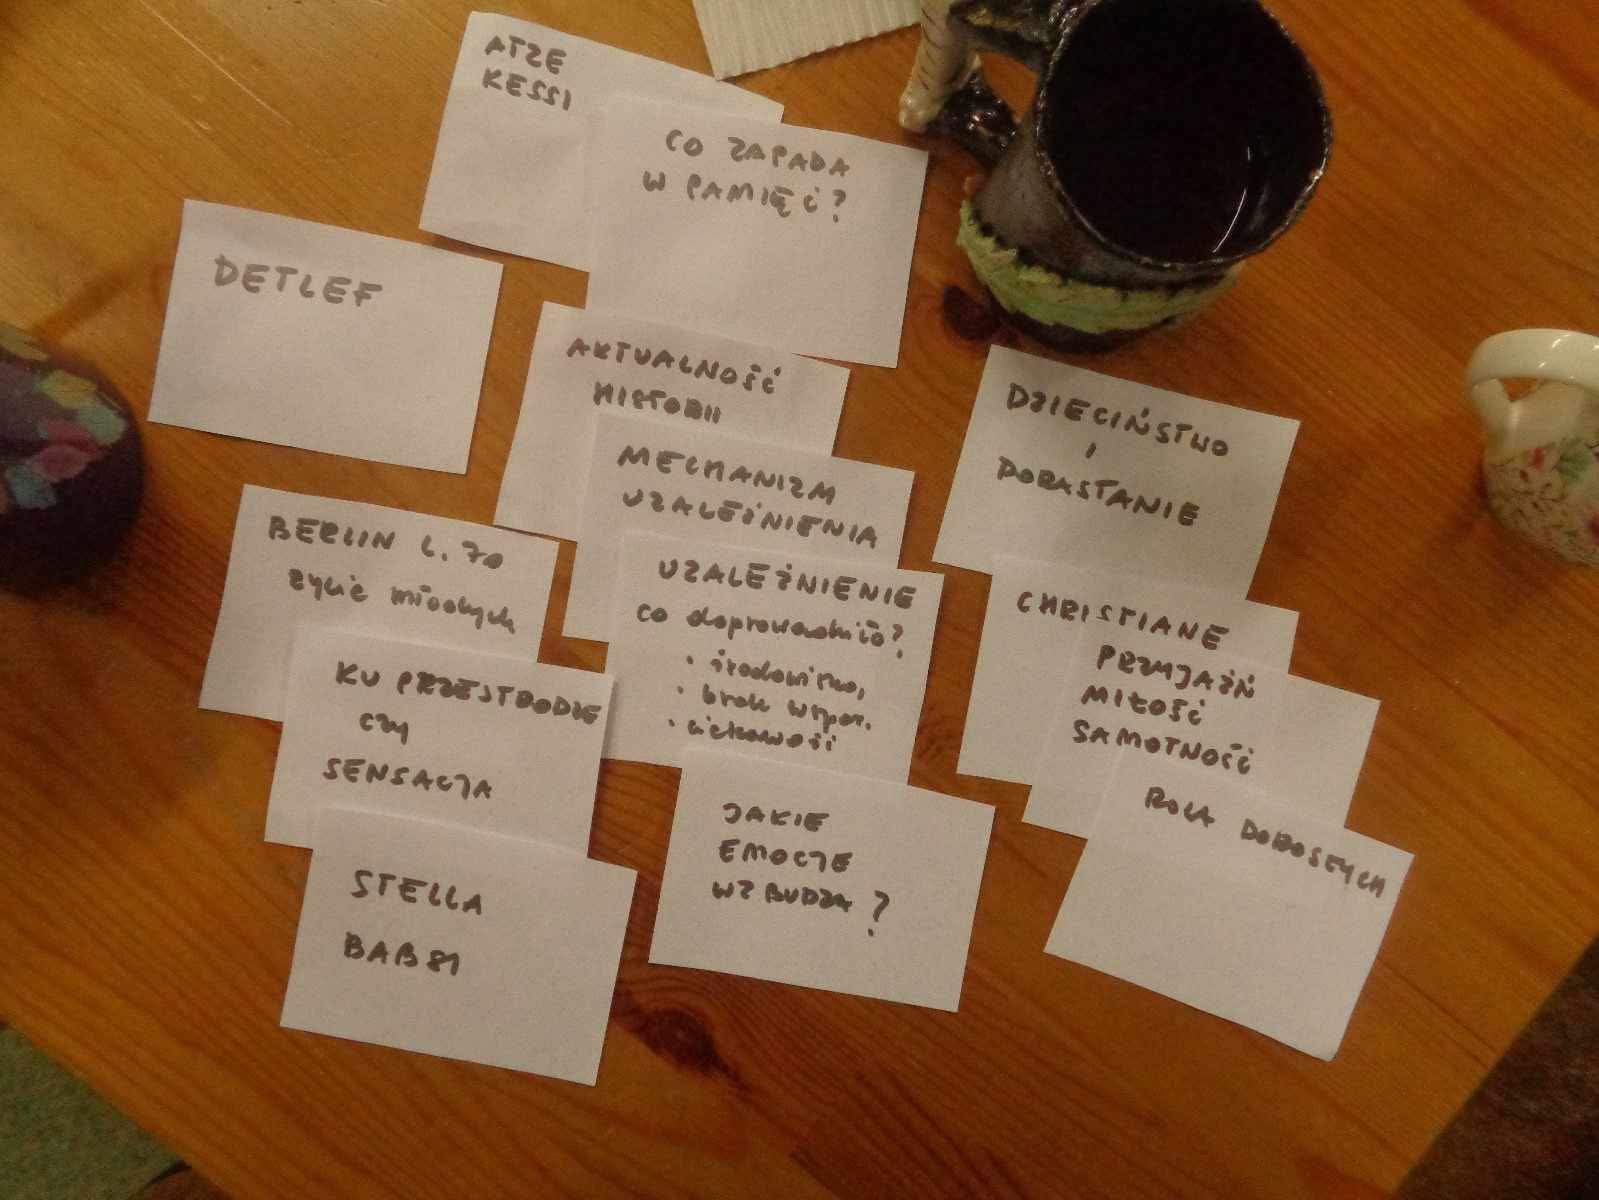 ATZE
KESSI
CO ZAPADA
W PAMIĘĆ?
DETLEF
AKTUALNOŚĆ
HISTORII
MECHANIZM
UZALEŻNIENIA
DZIECIŃSTWO
I
DORASTANIE
BERLIN L. 70
życie młodych
UZALEŻNIENIE
co doprowadziło?
• środowisko,
• brak wspar.
• ciekawość
CHRISTIANE
PRZYJAŹŃ
MIŁOŚĆ
SAMOTNOŚĆ
KU PRZESTRODZE
czy
SENSACJA
ROLA DOROSŁYCH
JAKIE
EMOCJE
WZBUDZA?
STELLA
BABSI